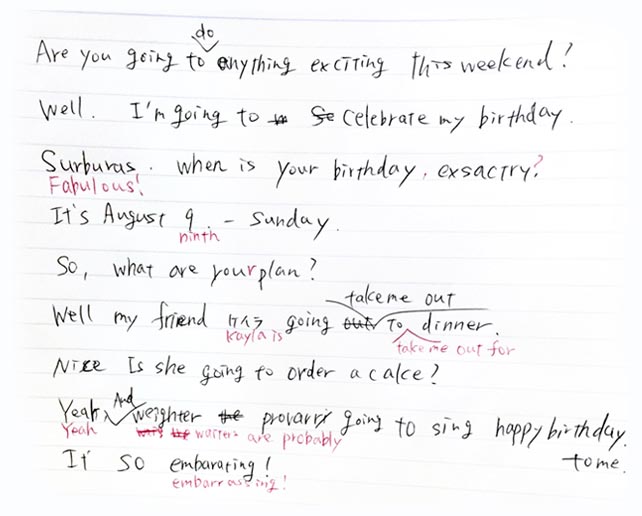 do
Are you going to anything exciting this weekend?
Well. I'm going to celebrate my birthday.
Surburas. when is your birthday, exsactry?
Fabulous!
It's August 9. - Sunday.
ninth
So, what are your plan?
take me out
Well my friend ケイラ going out to dinner.
Kayla is take me out for
Nice Is she going to order a calce?
And
Yeah, weighter the provarry going to sing happy birthday.
Yeah the waiters are probably
to me.
It so embarating!
embarrassing!